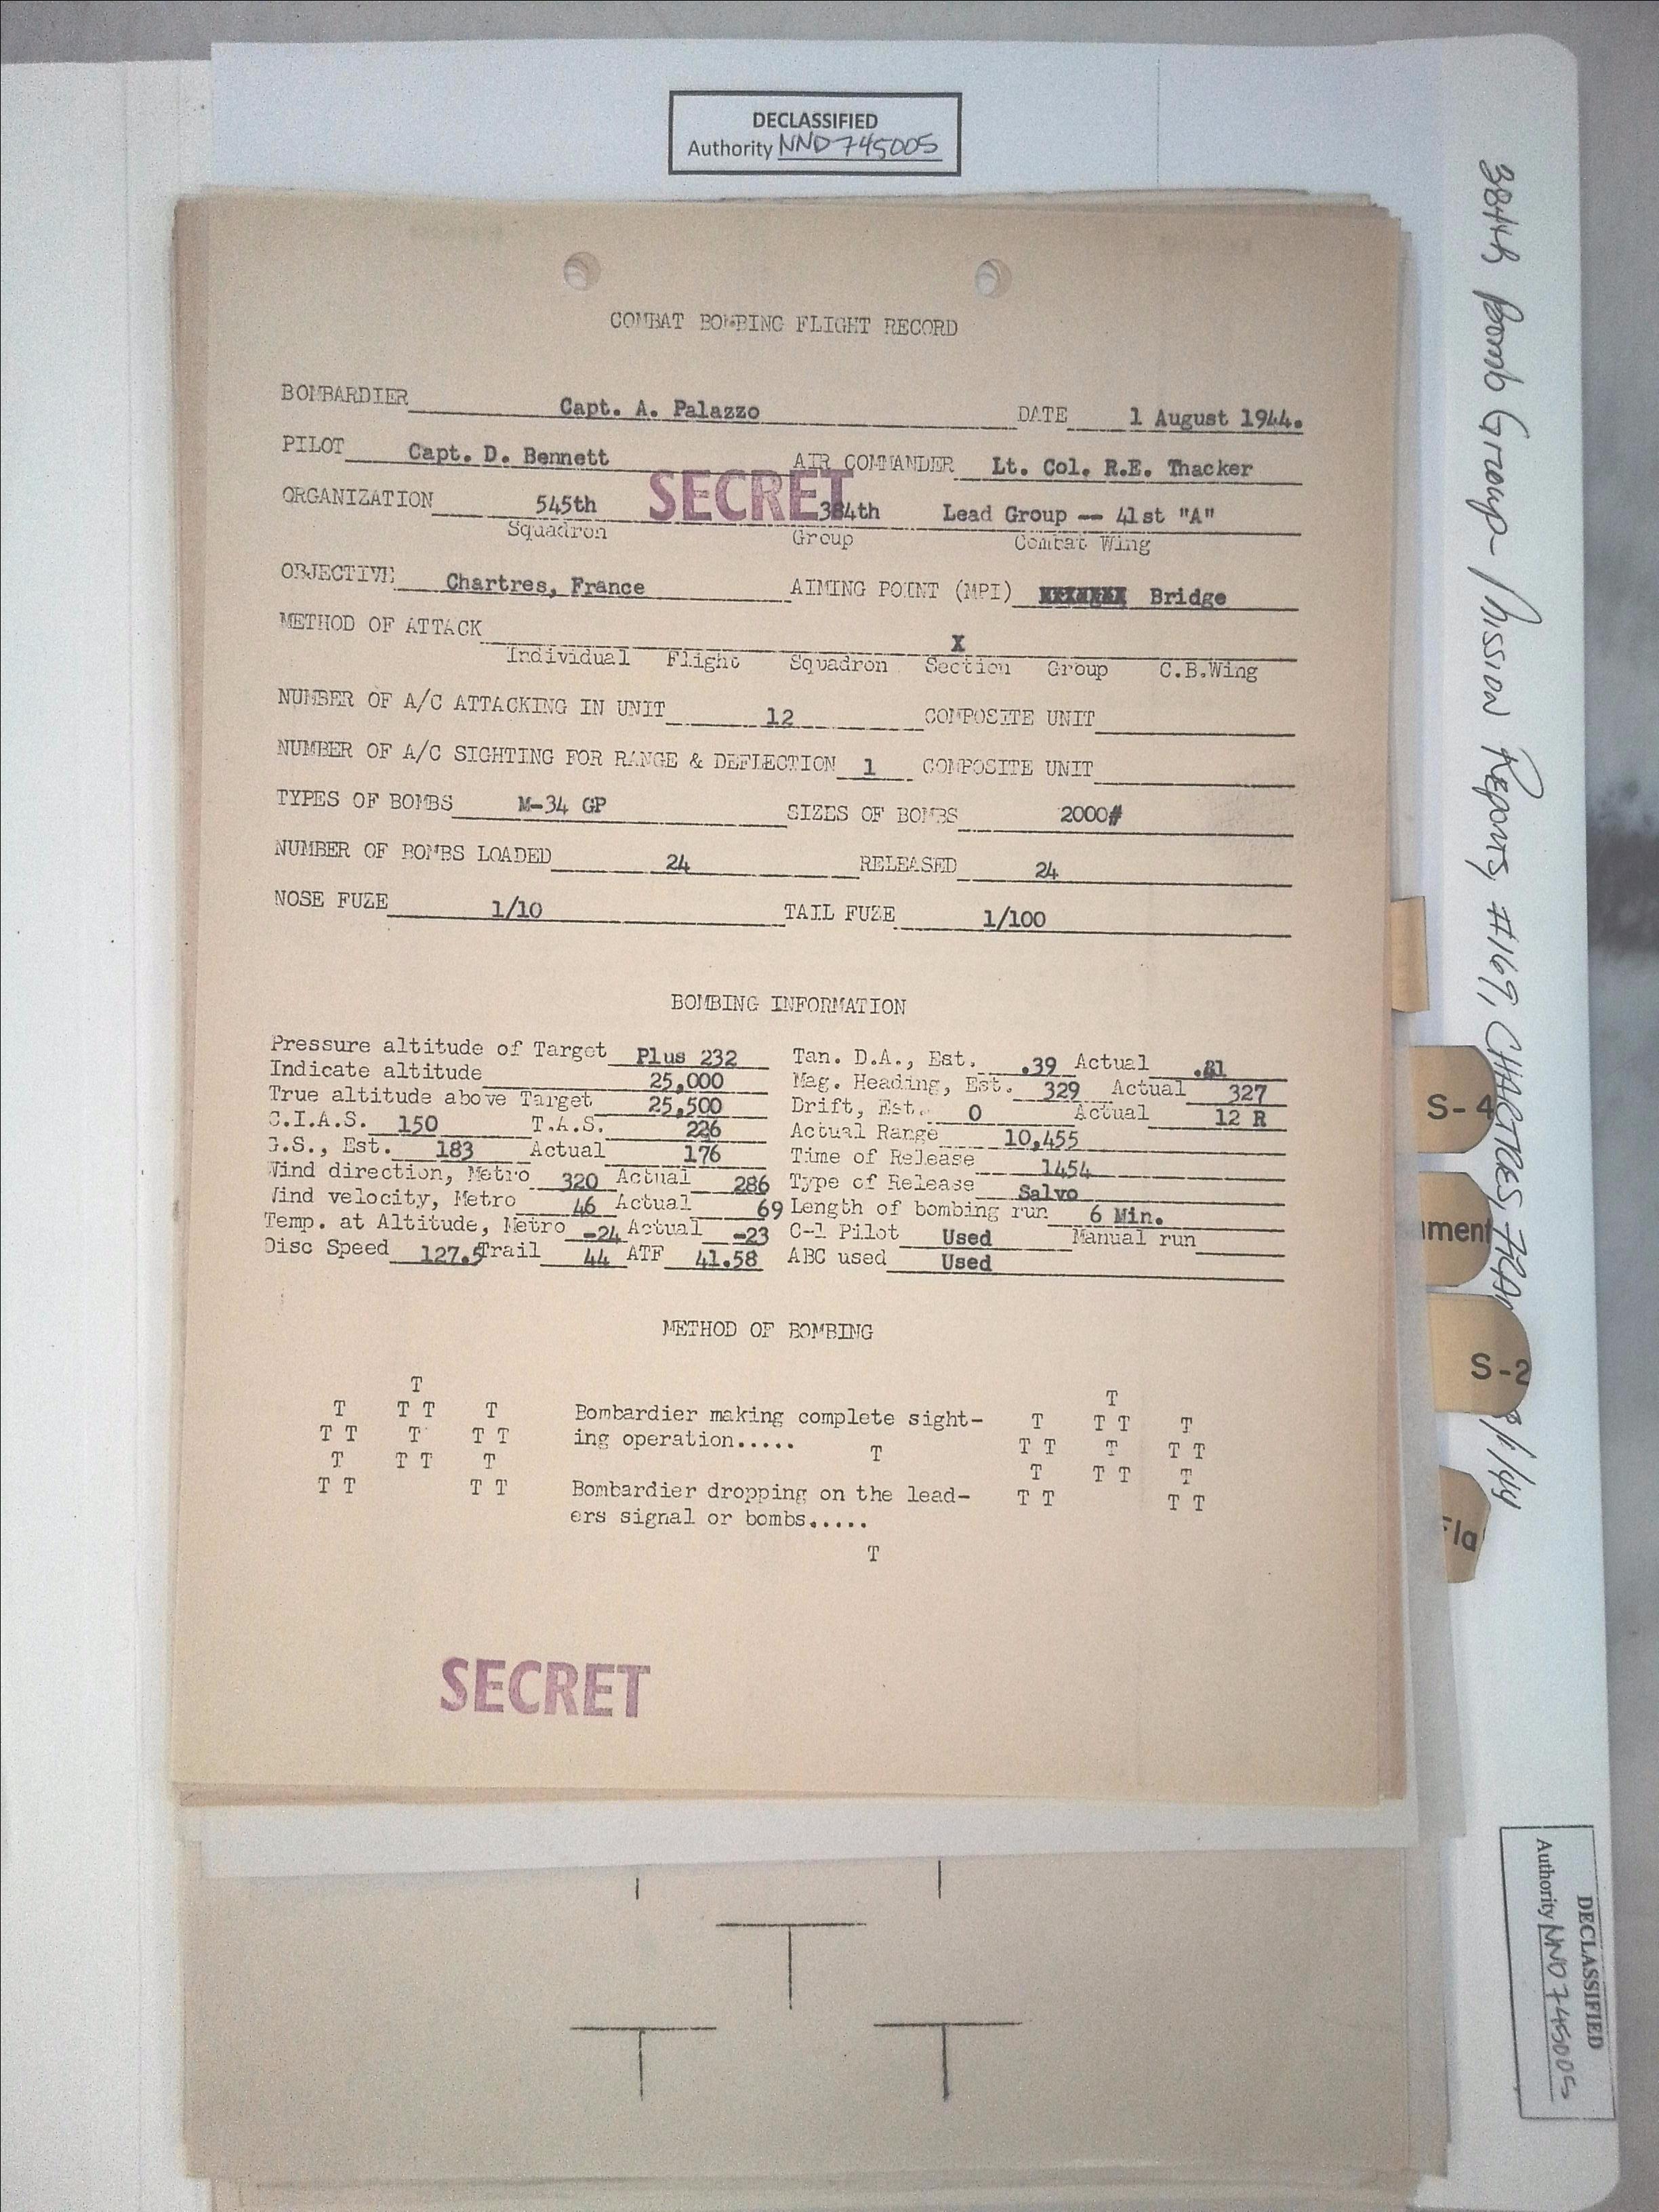 DECLASSIFIED
Authority NND 745005
COMBAT BOMBING FLIGHT RECORD
BOMBARDIER Capt. A. Palazzo DATE 1 August 1944.
PILOT Capt. D. Bennett AIR COMMANDER Lt. Col. R.E. Thacker
SECRET
ORGANIZATION 545th 384th Lead Group -- 41st "A"
Squadron Group Combat Wing
OBJECTIVE Chartres, France AIMING POINT (MPI) Bridge
METHOD OF ATTACK X
Individual Flight Squadron Section Group C.B.Wing
NUMBER OF A/C ATTACKING IN UNIT 12 COMPOSITE UNIT
NUMBER OF A/C SIGHTING FOR RANGE & DEFLECTION 1 COMPOSITE UNIT
TYPES OF BOMBS M-34 GP SIZES OF BOMBS 2000#
NUMBER OF BOMBS LOADED 24 RELEASED 24
NOSE FUZE 1/10 TAIL FUZE 1/100
BOMBING INFORMATION
Pressure altitude of Target Plus 232 Tan. D.A., Est. .39 Actual
Indicate altitude 25,000 Mag. Heading, Est. 329 Actual 327
True altitude above Target 25,500 Drift, Est. 0 Actual 12 R
C.I.A.S. 150 T.A.S. 226 Actual Range 10,455
G.S., Est. 183 Actual 176 Time of Release 1454
Wind direction, Metro 320 Actual 286 Type of Release Salvo
Wind velocity, Metro 46 Actual 69 Length of bombing run 6 Min.
Temp. at Altitude, Metro -24 Actual -23 C-1 Pilot Used Manual run
Disc Speed 127.5 Trail 44 ATF 41.58 ABC used Used
METHOD OF BOMBING
T T
T T T T T T T T
T T T T T T T T T T
T T T T T T T T
T T T T T T T T
Bombardier making complete sight-
ing operation..... T
Bombardier dropping on the lead-
ers signal or bombs.....
T
SECRET
384th Bomb Group - Mission Reports, #169, CHARTRES, FRA 8/1/44
S-4
ment
S-2
Fla
DECLASSIFIED
Authority NND 745005